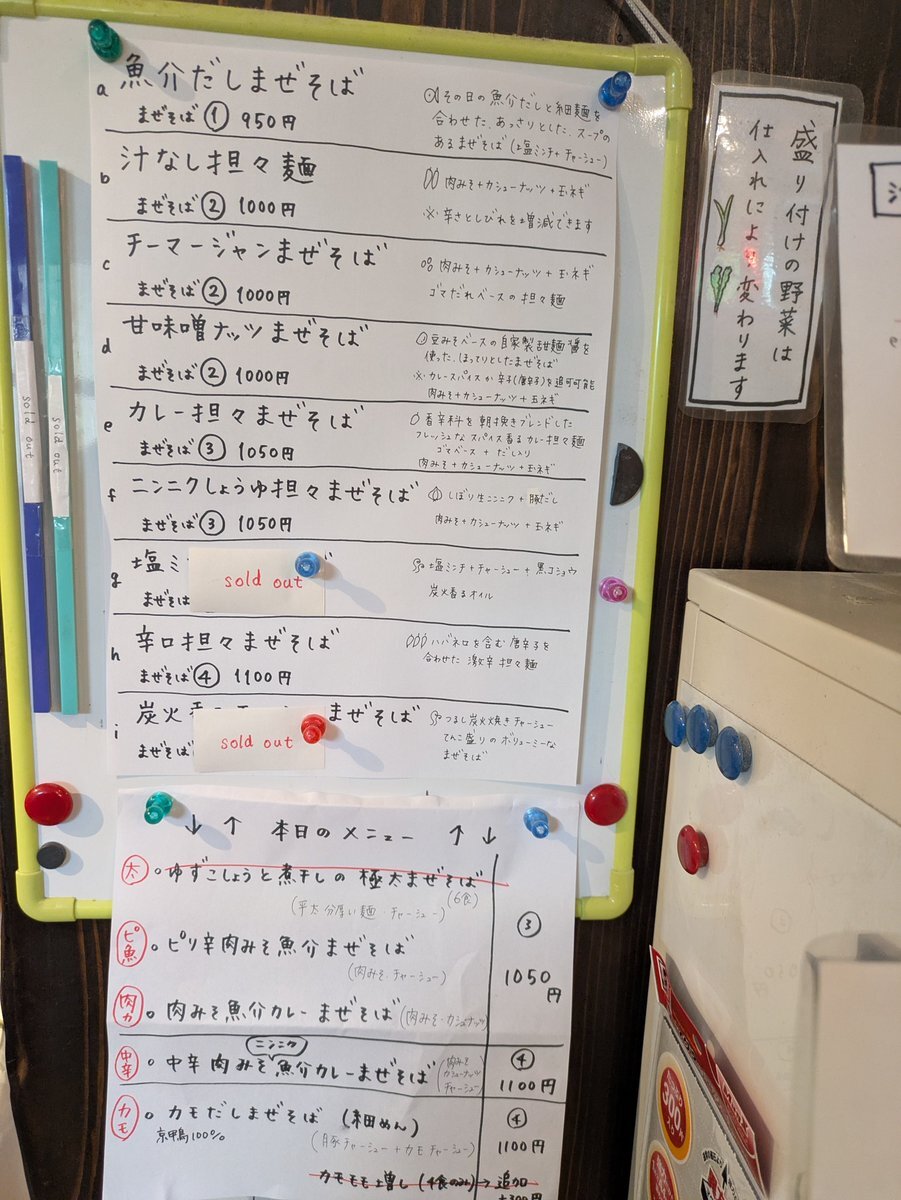 a 魚介だしまぜそば
まぜそば ① 950円
その日の魚介だしと細麺を
合わせた、あっさりとした、スープの
あるまぜそば (塩ミンチ+チャーシュー)
b 汁なし担々麺
まぜそば ② 1000円
肉みそ+カシューナッツ+玉ネギ
※ 辛さとしびれを増減できます
c チーマージャンまぜそば
まぜそば ② 1000円
肉みそ+カシューナッツ+玉ネギ
ゴマだれベースの担々麺
d 甘味噌ナッツまぜそば
まぜそば ② 1000円
豆みそベースの自家製甜麺醤を
使った、ほってりとしたまぜそば
※ カレースパイスか辛子(唐辛子)を追可可能
肉みそ+カシューナッツ+玉ネギ
e カレー担々まぜそば
まぜそば ③ 1050円
香辛料を朝挽きブレンドした
フレッシュなスパイス香るカレー担々麺
ゴマベース+だし入り
肉みそ+カシューナッツ+玉ネギ
f ニンニクしょうゆ担々まぜそば
まぜそば ③ 1050円
しぼり生ニンニク+豚だし
肉みそ+カシューナッツ+玉ネギ
g 塩ミ
まぜそば
sold out
塩ミンチ+チャーシュー+黒コショウ
炭火香るオイル
h 辛口担々まぜそば
まぜそば ④ 1100円
ハバネロを含む唐辛子を
合わせた激辛担々麺
i 炭火 まぜそば
まぜそば
sold out
つるし炭火焼きチャーシュー
てんこ盛りのボリューミーな
まぜそば
sold out
sold out
盛り付けの野菜は
仕入れにより変わります
↓ ↑ 本日のメニュー ↑ ↓
太 ゆずこしょうと煮干しの極太まぜそば
(6食)
(平太分厚い麺・チャーシュー)
ピ魚 ピリ辛肉みそ魚介まぜそば
(肉みそ・チャーシュー)
③
1050円
肉カ 肉みそ魚介カレーまぜそば (肉みそ・カシュナッツ)
ニンニク
中辛 中辛肉みそ魚介カレーまぜそば
(肉みそ
カシューナッツ
チャーシュー)
④
1100円
カモ カモだしまぜそば (細めん)
京鴨100%
(豚チャーシュー+カモチャーシュー)
④
1100円
カモモモ増し (4食のみ)→追加
+300円
300